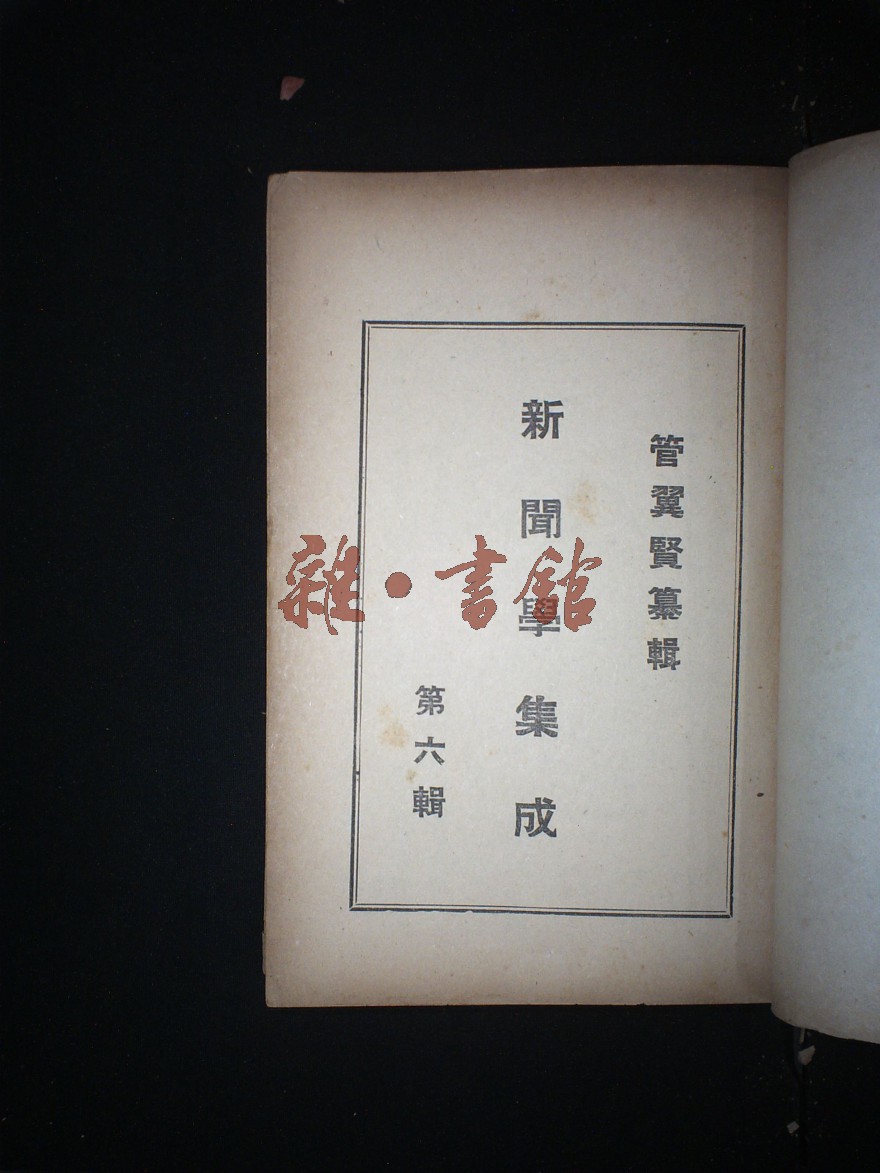 管翼賢纂輯
新聞學集成
第六輯
雜·書館